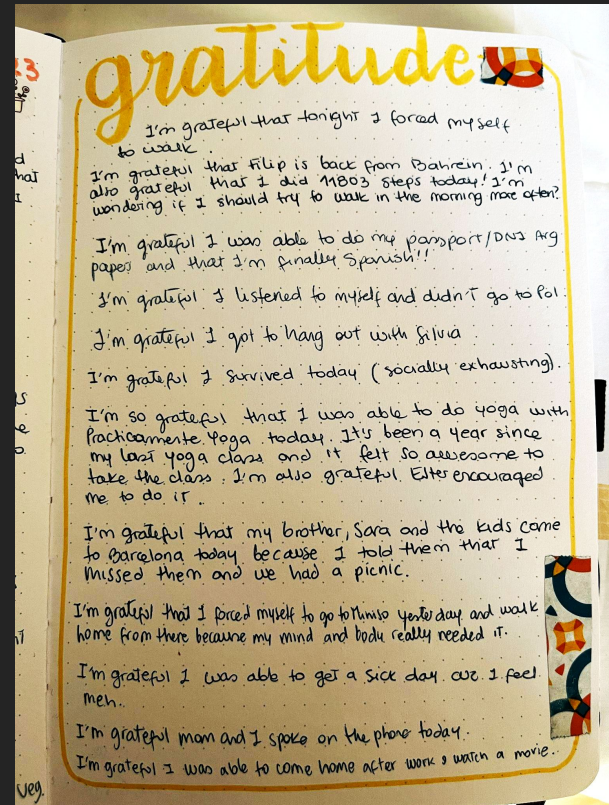 gratitude
I'm grateful that tonight I forced myself
to walk.
I'm grateful that Filip is back from Bahrein. I'm
also grateful that I did 11803 steps today! I'm
wondering if I should try to walk in the morning more often?
I'm grateful I was able to do my passport/DNI Arg
papers and that I'm finally Spanish!!
I'm grateful I listened to myself and didn't go to Pol.
I'm grateful I got to hang out with Silvia
I'm grateful I survived today (socially exhausting).
I'm so grateful that I was able to do yoga with
Practicamente Yoga today. It's been a year since
my last yoga class and it felt so awesome to
take the class. I'm also grateful Ester encouraged
me to do it.
I'm grateful that my brother, Sara and the kids came
to Barcelona today because I told them that I
missed them and we had a picnic.
I'm grateful that I forced myself to go to Miniso yesterday and walk
home from there because my mind and body really needed it.
I'm grateful I was able to get a sick day cuz I feel
meh..
I'm grateful mom and I spoke on the phone today.
I'm grateful I was able to come home after work & watch a movie.
3
d
hat
I
veg.